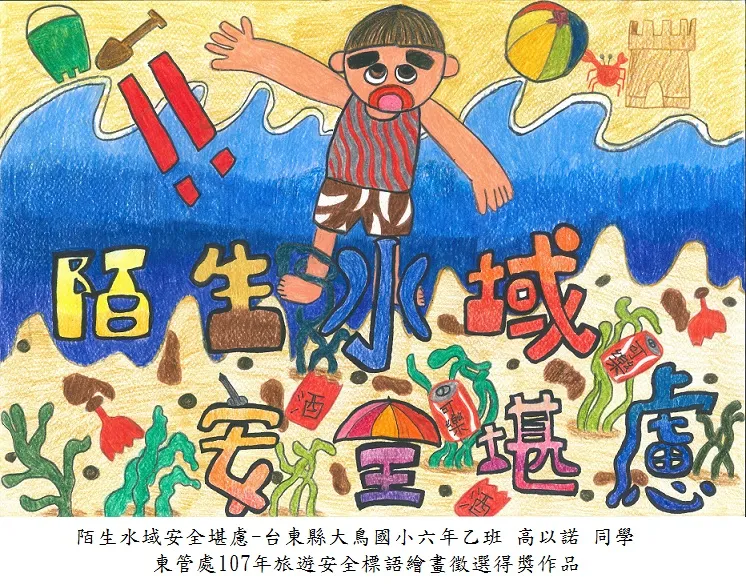 !!
陌生水域
可樂
酒
可樂
安全堪慮
酒
陌生水域安全堪慮-台東縣大鳥國小六年乙班 高以諾 同學
東管處107年旅遊安全標語繪畫徵選得獎作品